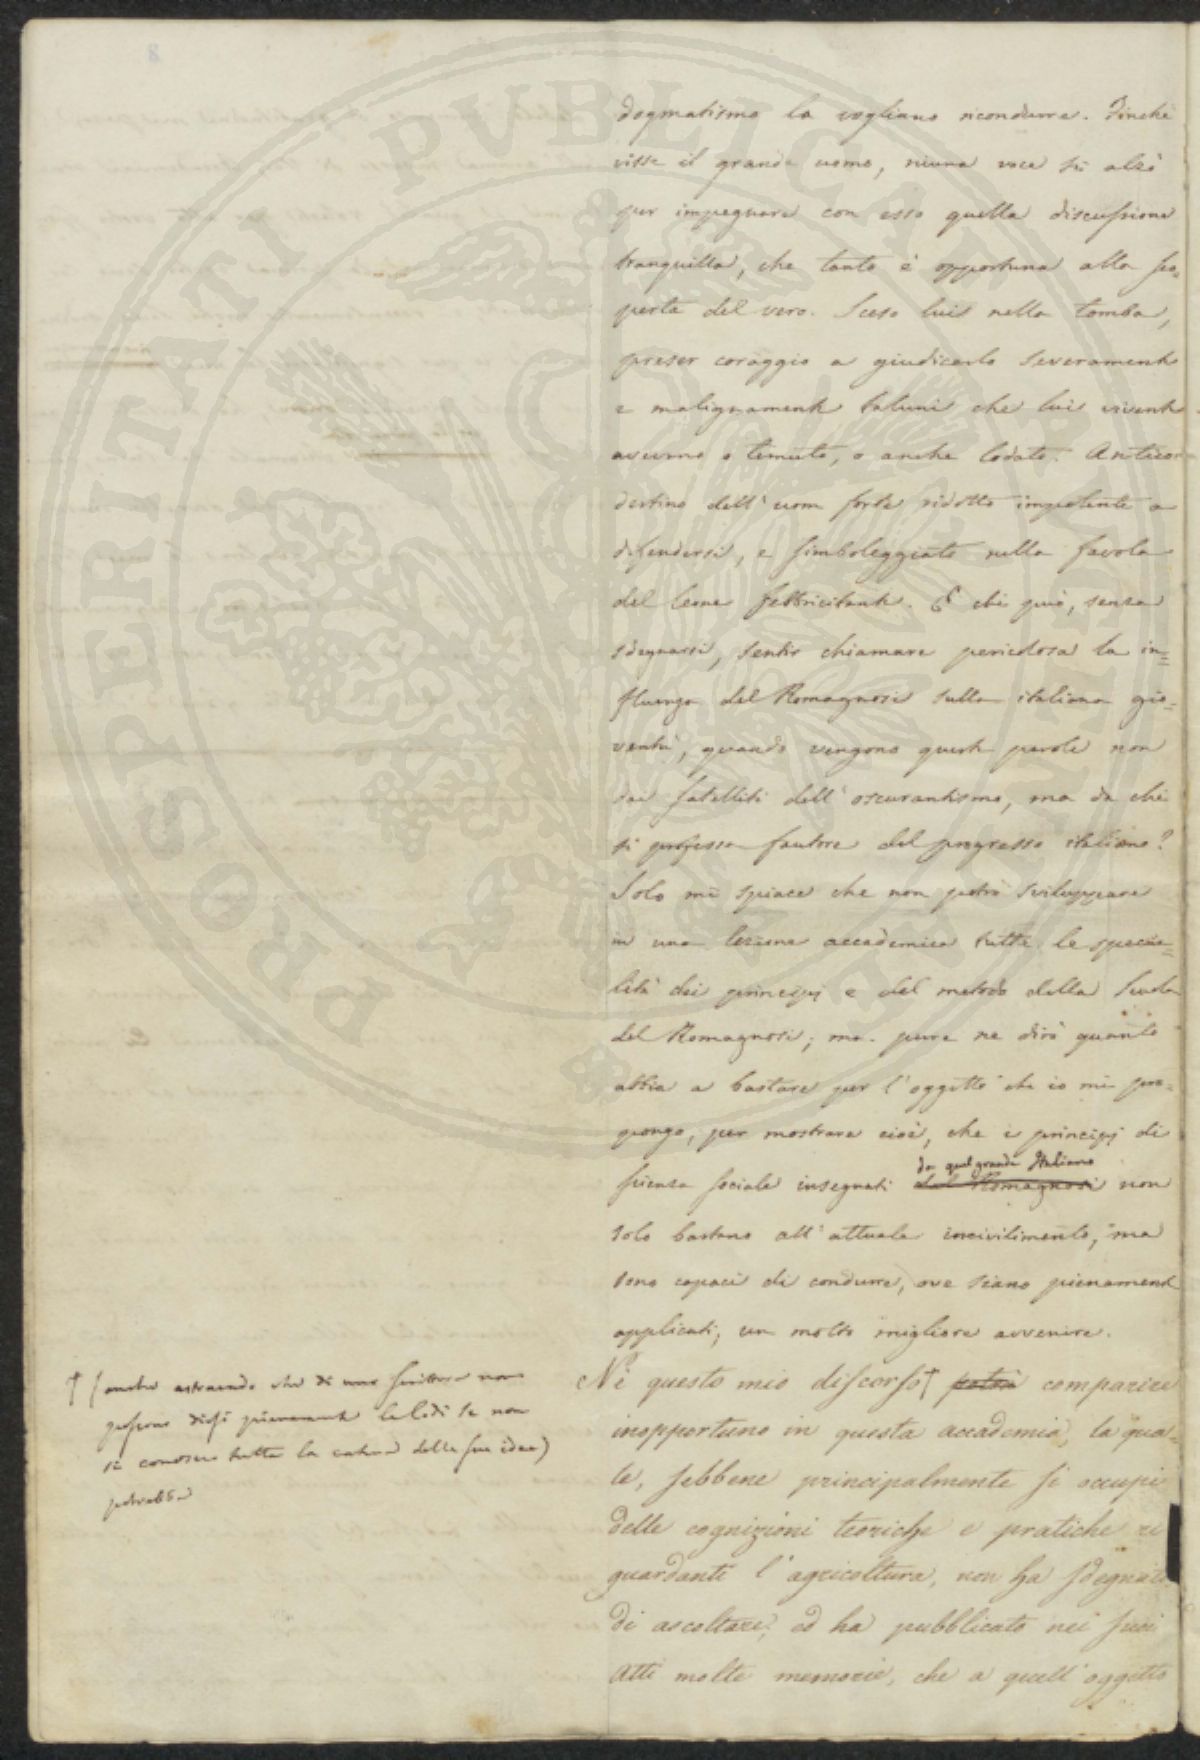 dogmatismo la vogliano ricondurre. Finché
visse il grande uomo, niuna voce si alzò
per impegnare con esso quella discussione
tranquilla, che tanto è opportuna alla sco-
perta del vero. Sceso lui nella tomba,
preser coraggio a giudicarlo severamente
e malignamente taluni che lui vivente
avevano o temuto, o anche lodato. Antico
destino dell'uom forte ridotto impotente a
difendersi, e simboleggiato nella favola
del leone febbricitante. E chi può, senza
sdegnarsi, sentir chiamare pericolosa la in=
fluenza del Romagnosi sulla italiana gio=
ventù, quando vengono queste parole non
dai satelliti dell'oscurantismo, ma da chi
si professa fautore del progresso italiano?
Solo mi spiace che non potrò sviluppare
in una lezione accademica tutte le specia=
lità dei principj e del metodo della Scuola
del Romagnosi; ma pure ne dirò quanto
abbia a bastare per l'oggetto che io mi pro=
pongo, per mostrare cioè, che i principj di
scienza sociale insegnati del Romagnosi non
da quel grande Italiano
solo bastano all'attuale incivilimento, ma
sono capaci di condurre, ove siano pienamente
applicati, un molto migliore avvenire.
Nè questo mio discorso† potrà comparire
inopportuno in questa accademia, la qua-
le, sebbene principalmente si occupi
delle cognizioni teoriche e pratiche ri
guardanti l'agricoltura, non ha sdegnato
di ascoltare, ed ha pubblicato nei suoi
Atti molte memorie, che a quell'oggetto
† (anche astraendo che di uno scrittore non
possono dirsi pienamente le lodi se non
si conosce tutta la natura delle sue idee)
potrebbe
PROSPERITATI PVBLICAE